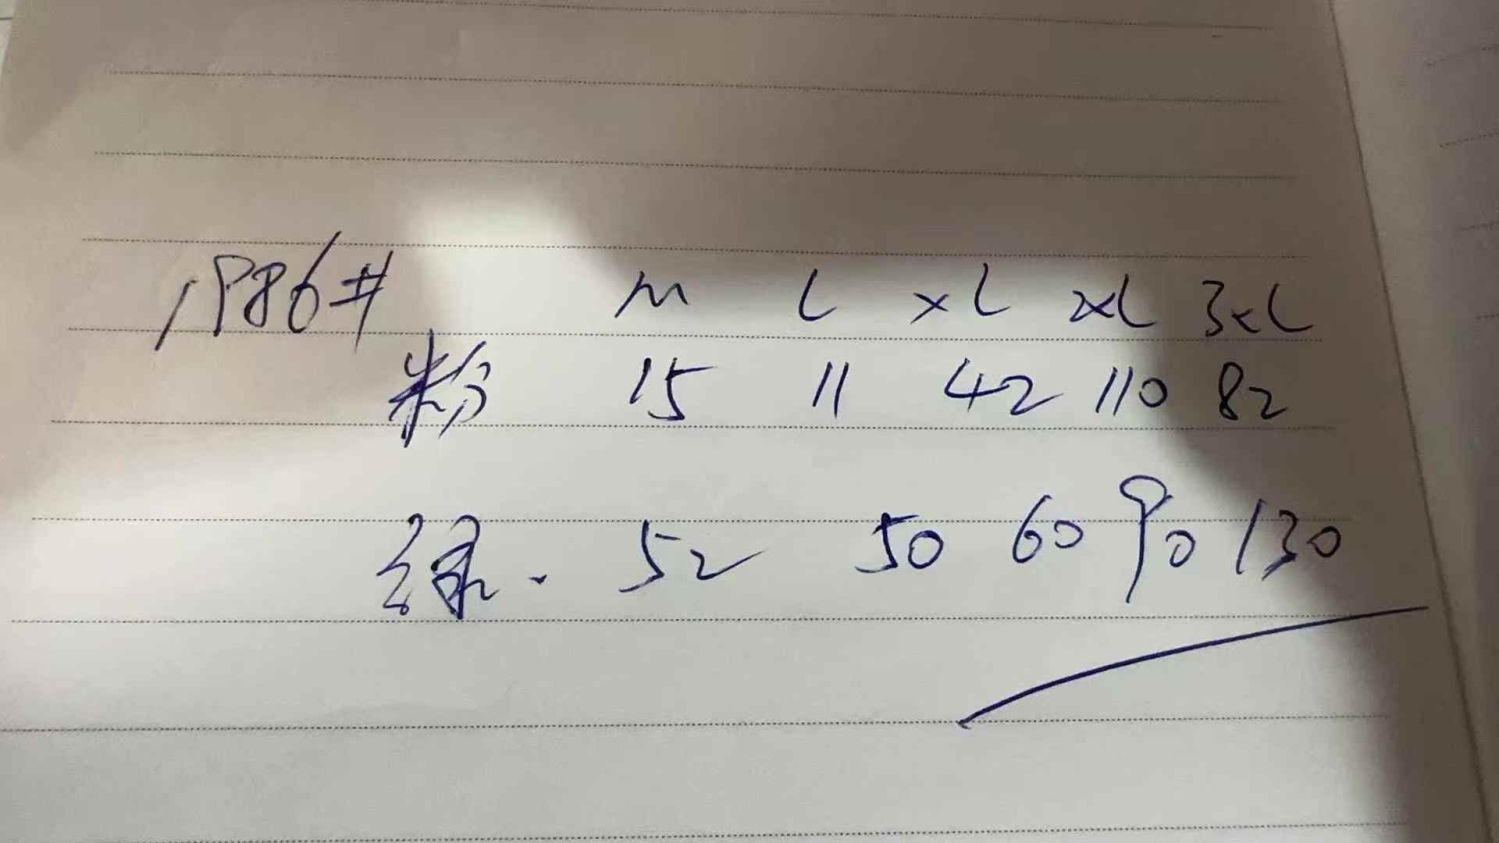 1986# M L XL 2XL 3XL
粉 15 11 42 110 82
绿. 52 50 60 90 130